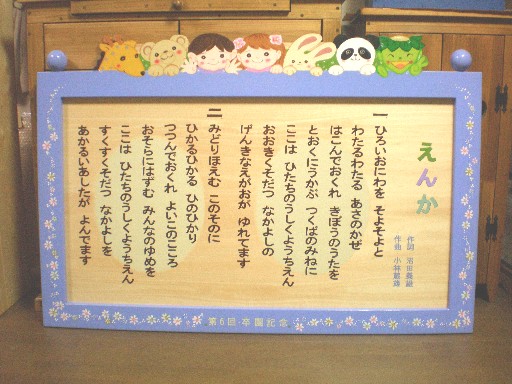 えんか
作詞
作曲 小林
一 ひろいおにわを そよそよと
わたるわたる あさのかぜ
はこんでおくれ きぼうのうたを
とおくにうかぶ つくばのみねに
ここは ひたちのうしくようちえん
おおきくそだつ なかよしの
げんきなえがおが ゆれてます
二 みどりほえむ このそのに
ひかるひかる ひのひかり
つつんでおくれ よいこのこころ
おそらにはずむ みんなのゆめを
ここは ひたちのうしくようちえん
すくすくそだつ なかよしを
あかるいあしたが よんでます
第6回 卒園記念